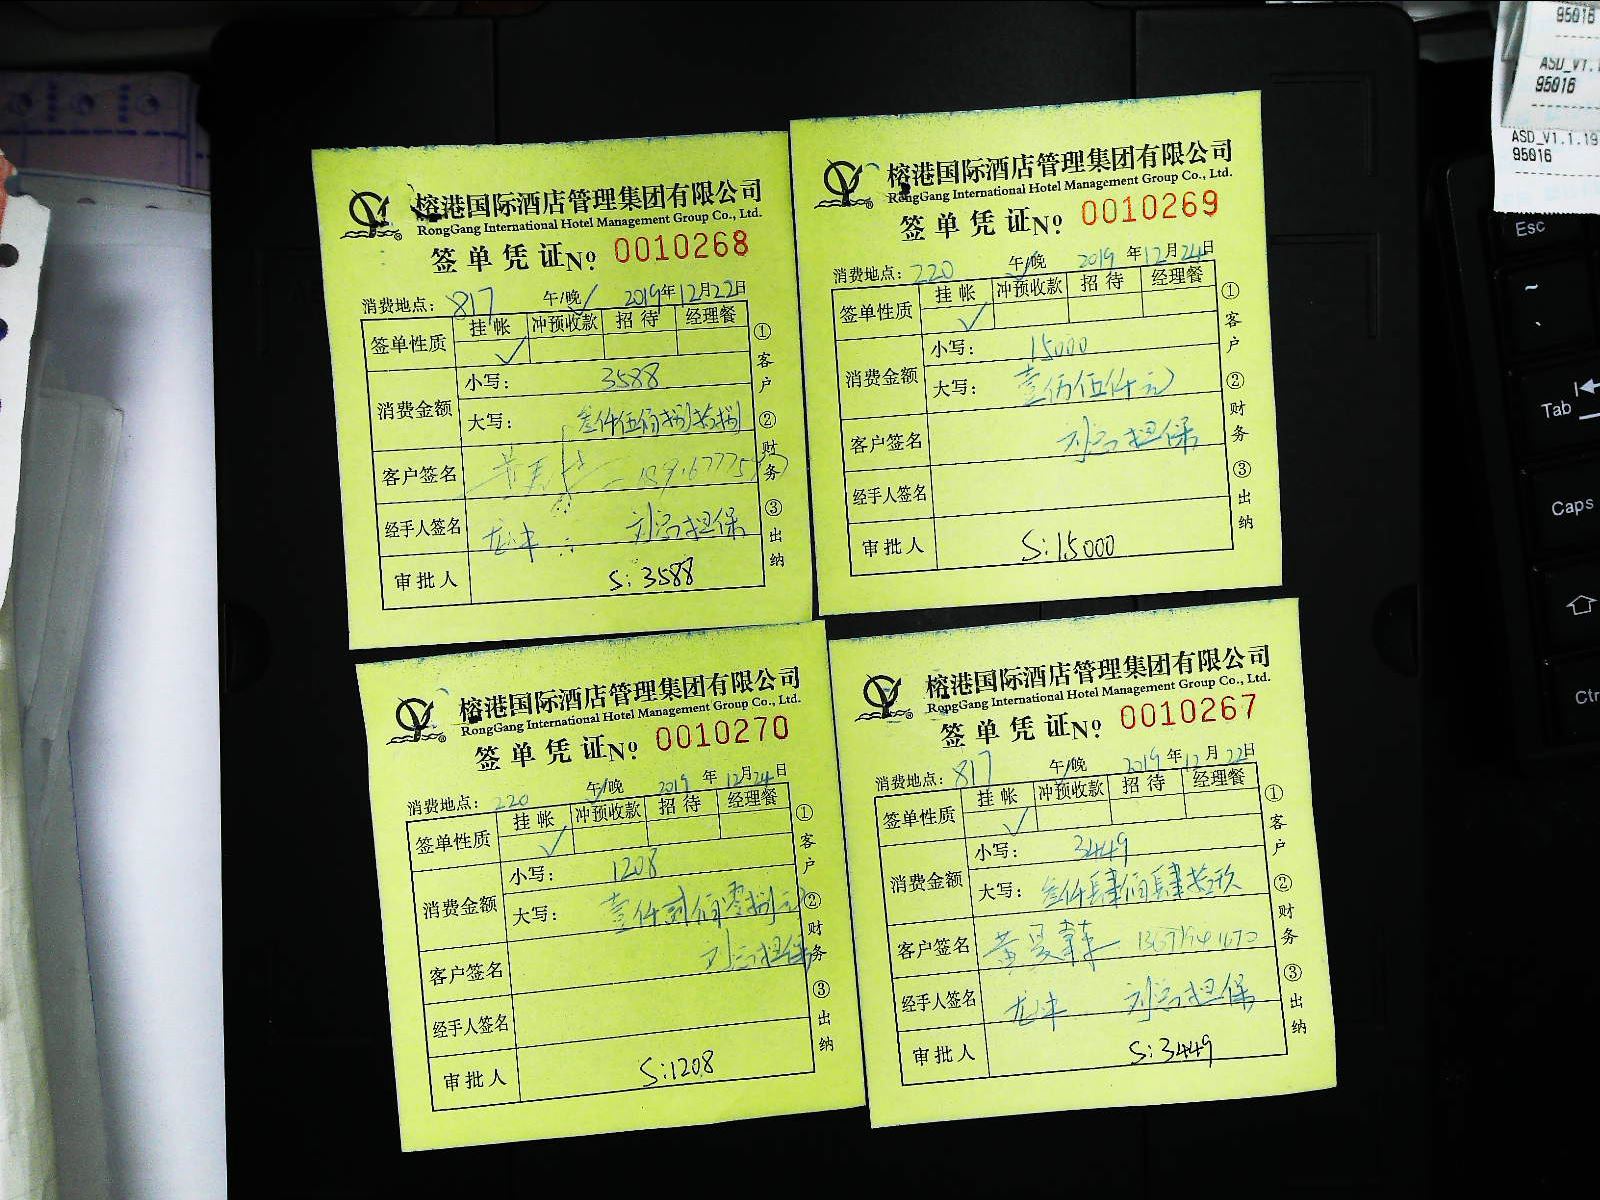 榕港国际酒店管理集团有限公司
RongGang International Hotel Management Group Co., Ltd.
签单凭证 No. 0010268
消费地点: 817 午/晚 2019年12月22日
签单性质 挂帐 冲预收款 招待 经理餐
✓
消费金额 小写: 3588
大写: 叁仟伍佰捌拾捌
客户签名
经手人签名 担保
审批人 S:3588
①客户 ②财务 ③出纳
榕港国际酒店管理集团有限公司
RongGang International Hotel Management Group Co., Ltd.
签单凭证 No. 0010269
消费地点: 220 午/晚 2019年12月24日
签单性质 挂帐 冲预收款 招待 经理餐
✓
消费金额 小写: 15000
大写: 壹万伍仟元
客户签名 担保
经手人签名
审批人 S:15000
①客户 ②财务 ③出纳
榕港国际酒店管理集团有限公司
RongGang International Hotel Management Group Co., Ltd.
签单凭证 No. 0010270
消费地点: 220 午/晚 2019年12月24日
签单性质 挂帐 冲预收款 招待 经理餐
✓
消费金额 小写: 1208
大写: 壹仟贰佰零捌元
客户签名 担保
经手人签名
审批人 S:1208
①客户 ②财务 ③出纳
榕港国际酒店管理集团有限公司
RongGang International Hotel Management Group Co., Ltd.
签单凭证 No. 0010267
消费地点: 817 午/晚 2019年12月22日
签单性质 挂帐 冲预收款 招待 经理餐
✓
消费金额 小写: 3449
大写: 叁仟肆佰肆拾玖
客户签名
经手人签名 担保
审批人 S:3449
①客户 ②财务 ③出纳
95016
ASD_V1.1
95016
ASD_V1.1.19
95016
Esc
Tab
Caps
Ctr